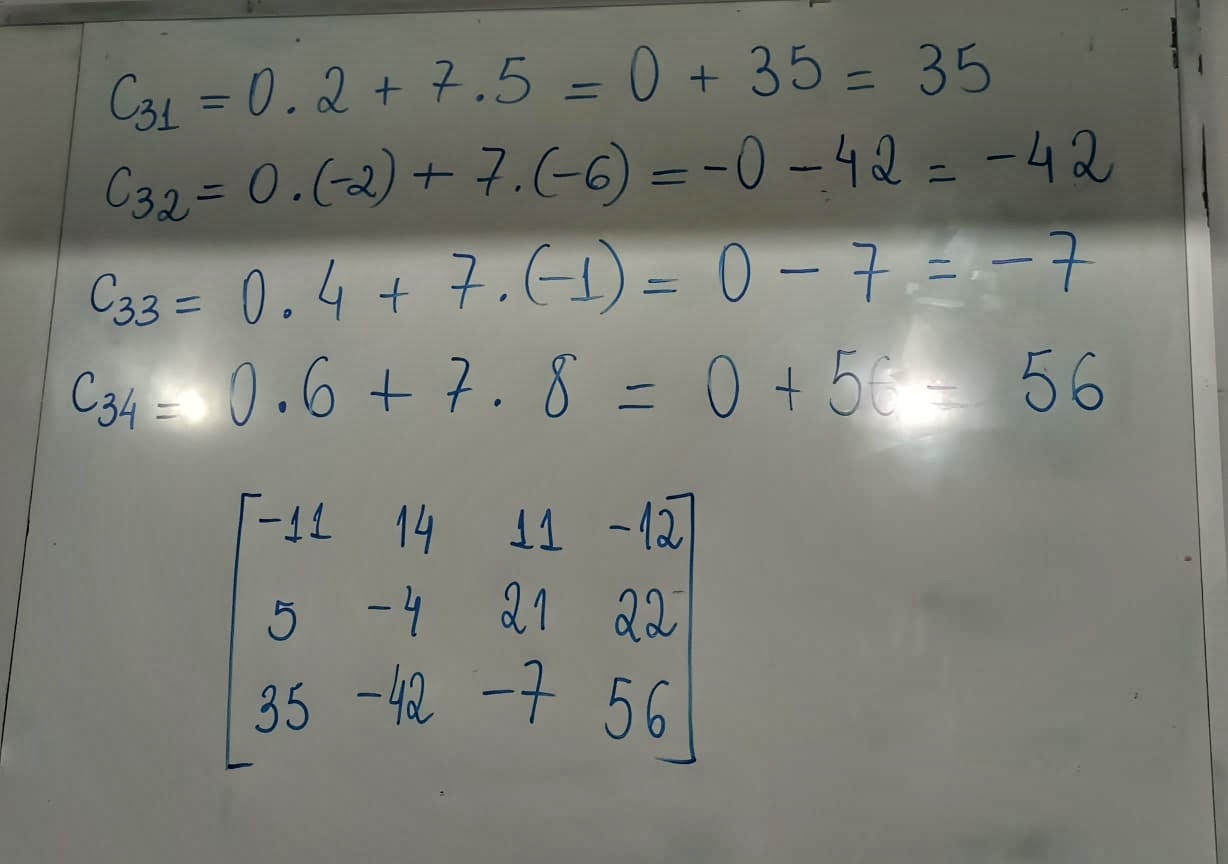 C₃₁ = 0 . 2 + 7 . 5 = 0 + 35 = 35
C₃₂ = 0 . (-2) + 7 . (-6) = -0 - 42 = -42
C₃₃ = 0 . 4 + 7 . (-1) = 0 - 7 = -7
C₃₄ = 0 . 6 + 7 . 8 = 0 + 56 = 56
-11 14 11 -12
5 -4 21 22
35 -42 -7 56